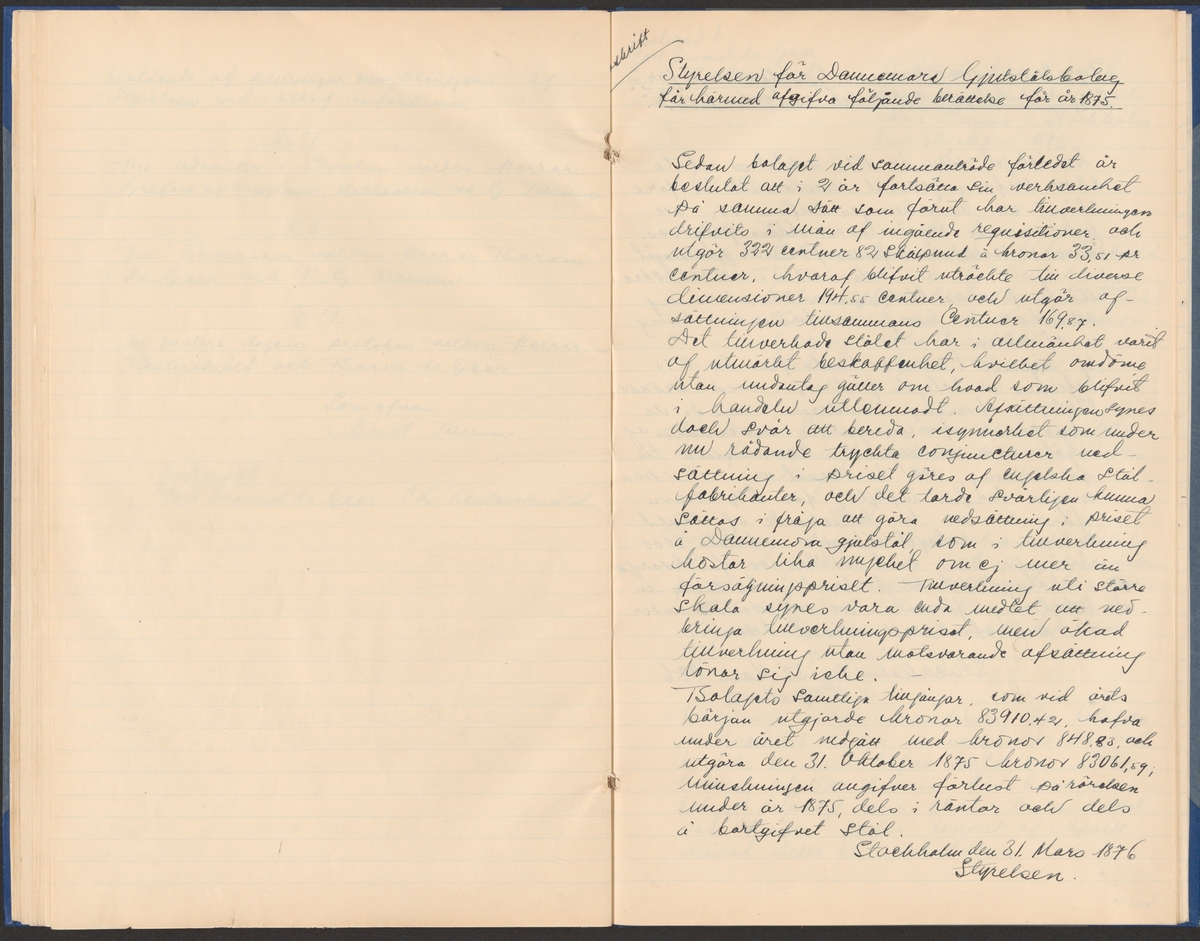 Styrelsen för Dannemora Gjutstålsbolag
får härmed afgifva följande berättelse för år 1875.
Sedan bolaget vid sammanträde förledet år
beslutat att i 2 år fortsätta sin verksamhet
på samma sätt som förut har tillverkningen
drifvits i mån af ingående requisitioner och
utgör 322 centner 82 skålpund à kronor 33,51 pr
centner, hvaraf blifvit uträckte till diverse
dimensioner 194,55 centner, och utgör af-
sättningen tillsammans Centner 169,87.
Det tillverkade stålet har i allmänhet varit
af utmärkt beskaffenhet, hvilket omdöme
utan undantag gäller om hvad som blifvit
i handeln utlemnadt. Afsättningen synes
dock svår att bereda, isynnerhet som under
nu rådande tryckta conjuncturer ned-
sättning i priset göres af engelska stål-
fabrikanter, och det torde svårligen kunna
sättas i fråga att göra nedsättning i priset
å Dannemora gjutstål, som i tillverkning
kostar lika mycket om ej mer än
försäljningspriset. Tillverkning uti större
skala synes vara enda medlet att ned-
bringa tillverkningspriset, men ökad
tillverkning utan motsvarande afsättning
lönar sig icke. —
Bolagets samtliga tillgångar, som vid årets
början utgjorde kronor 83910.42, hafva
under året nedgått med kronor 848,83, och
utgöra den 31. Oktober 1875 kronor 83061,59;
minskningen angifver förlust på rörelsen
under år 1875, dels i räntor och dels
å bortgifvet stål.
Stockholm den 31. Mars 1876
Styrelsen.